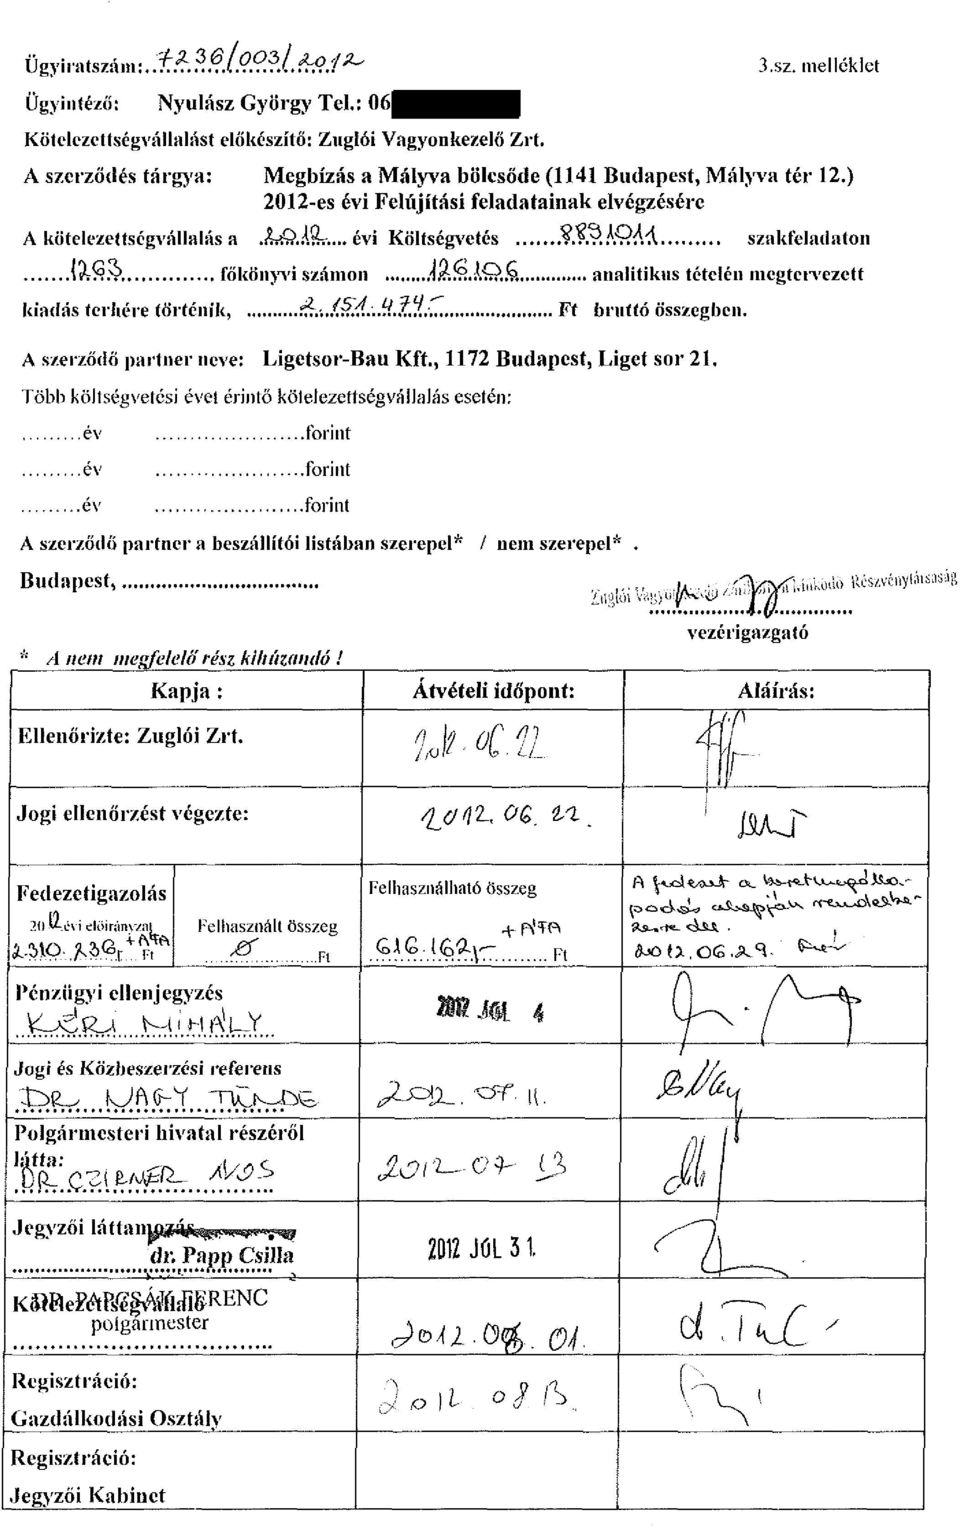 Ügyiratszám: 7236/003/2012
3.sz. melléklet
Ügyintéző: Nyulász György Tel.: 06
Kötelezettségvállalást előkészítő: Zuglói Vagyonkezelő Zrt.
A szerződés tárgya: Megbízás a Mályva bölcsőde (1141 Budapest, Mályva tér 12.)
2012-es évi Felújítási feladatainak elvégzésére
A kötelezettségvállalás a 2012 évi Költségvetés 8891011 szakfeladaton
1263 főkönyvi számon 126106 analitikus tételén megtervezett
kiadás terhére történik, 2.151.474.- Ft bruttó összegben.
A szerződő partner neve: Ligetsor-Bau Kft., 1172 Budapest, Liget sor 21.
Több költségvetési évet érintő kötelezettségvállalás esetén:
.........év ......................forint
.........év ......................forint
.........év ......................forint
A szerződő partner a beszállítói listában szerepel* / nem szerepel* .
Budapest, ..................................
Zuglói Működő Részvénytársaság
vezérigazgató
* A nem megfelelő rész kihúzandó !
Kapja : Átvételi időpont: Aláírás:
Ellenőrizte: Zuglói Zrt. 2012. 06. 22
Jogi ellenőrzést végezte: 2012. 06. 22.
Fedezetigazolás
2012 évi előirányzat
2.310.236,- + ÁFA Ft
Felhasznált összeg
Ø Ft
Felhasználható összeg
+ ÁFA
616.162,- Ft
A fedezet a keretmegálla-
podás alapján rendelke-
zésre áll.
2012.06.29.
Pénzügyi ellenjegyzés
KÉRI MIHÁLY
2012 JÚL 4
Jogi és Közbeszerzési referens
DR. NAGY TÜNDE
2012. 07. 11.
Polgármesteri hivatal részéről
látta:
DR CZIRNER
2012 07 13
Jegyzői láttamozás
dr. Papp Csilla
2012 JÚL 31.
Kötelezettségvállaló
DR. PAPCSÁK FERENC
polgármester
2012.08. 01.
Regisztráció:
Gazdálkodási Osztály
2012 08 13.
Regisztráció:
Jegyzői Kabinet